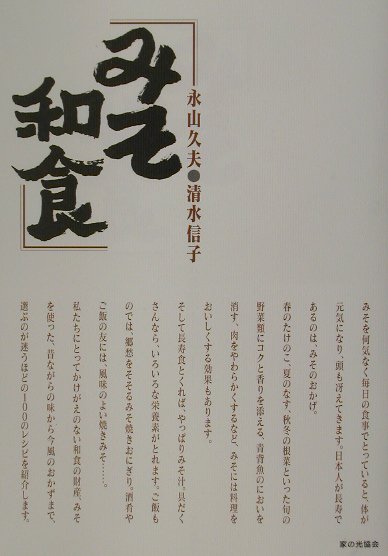 みそ
和食
永山久夫●清水信子
みそを何気なく毎日の食事でとっていると、体が
元気になり、頭も冴えてきます。日本人が長寿で
あるのは、みそのおかげ。
春のたけのこ、夏のなす、秋冬の根菜といった旬の
野菜類にコクと香りを添える、青背魚のにおいを
消す、肉をやわらかくするなど、みそには料理を
おいしくする効果もあります。
そして長寿食とくれば、やっぱりみそ汁。具だく
さんなら、いろいろな栄養素がとれます。ご飯も
のでは、郷愁をそそるみそ焼きおにぎり。酒肴や
ご飯の友には、風味のよい焼きみそ……。
私たちにとってかけがえのない和食の財産、みそ
を使った、昔ながらの味から今風のおかずまで、
選ぶのが迷うほどの100のレシピを紹介します。
家の光協会